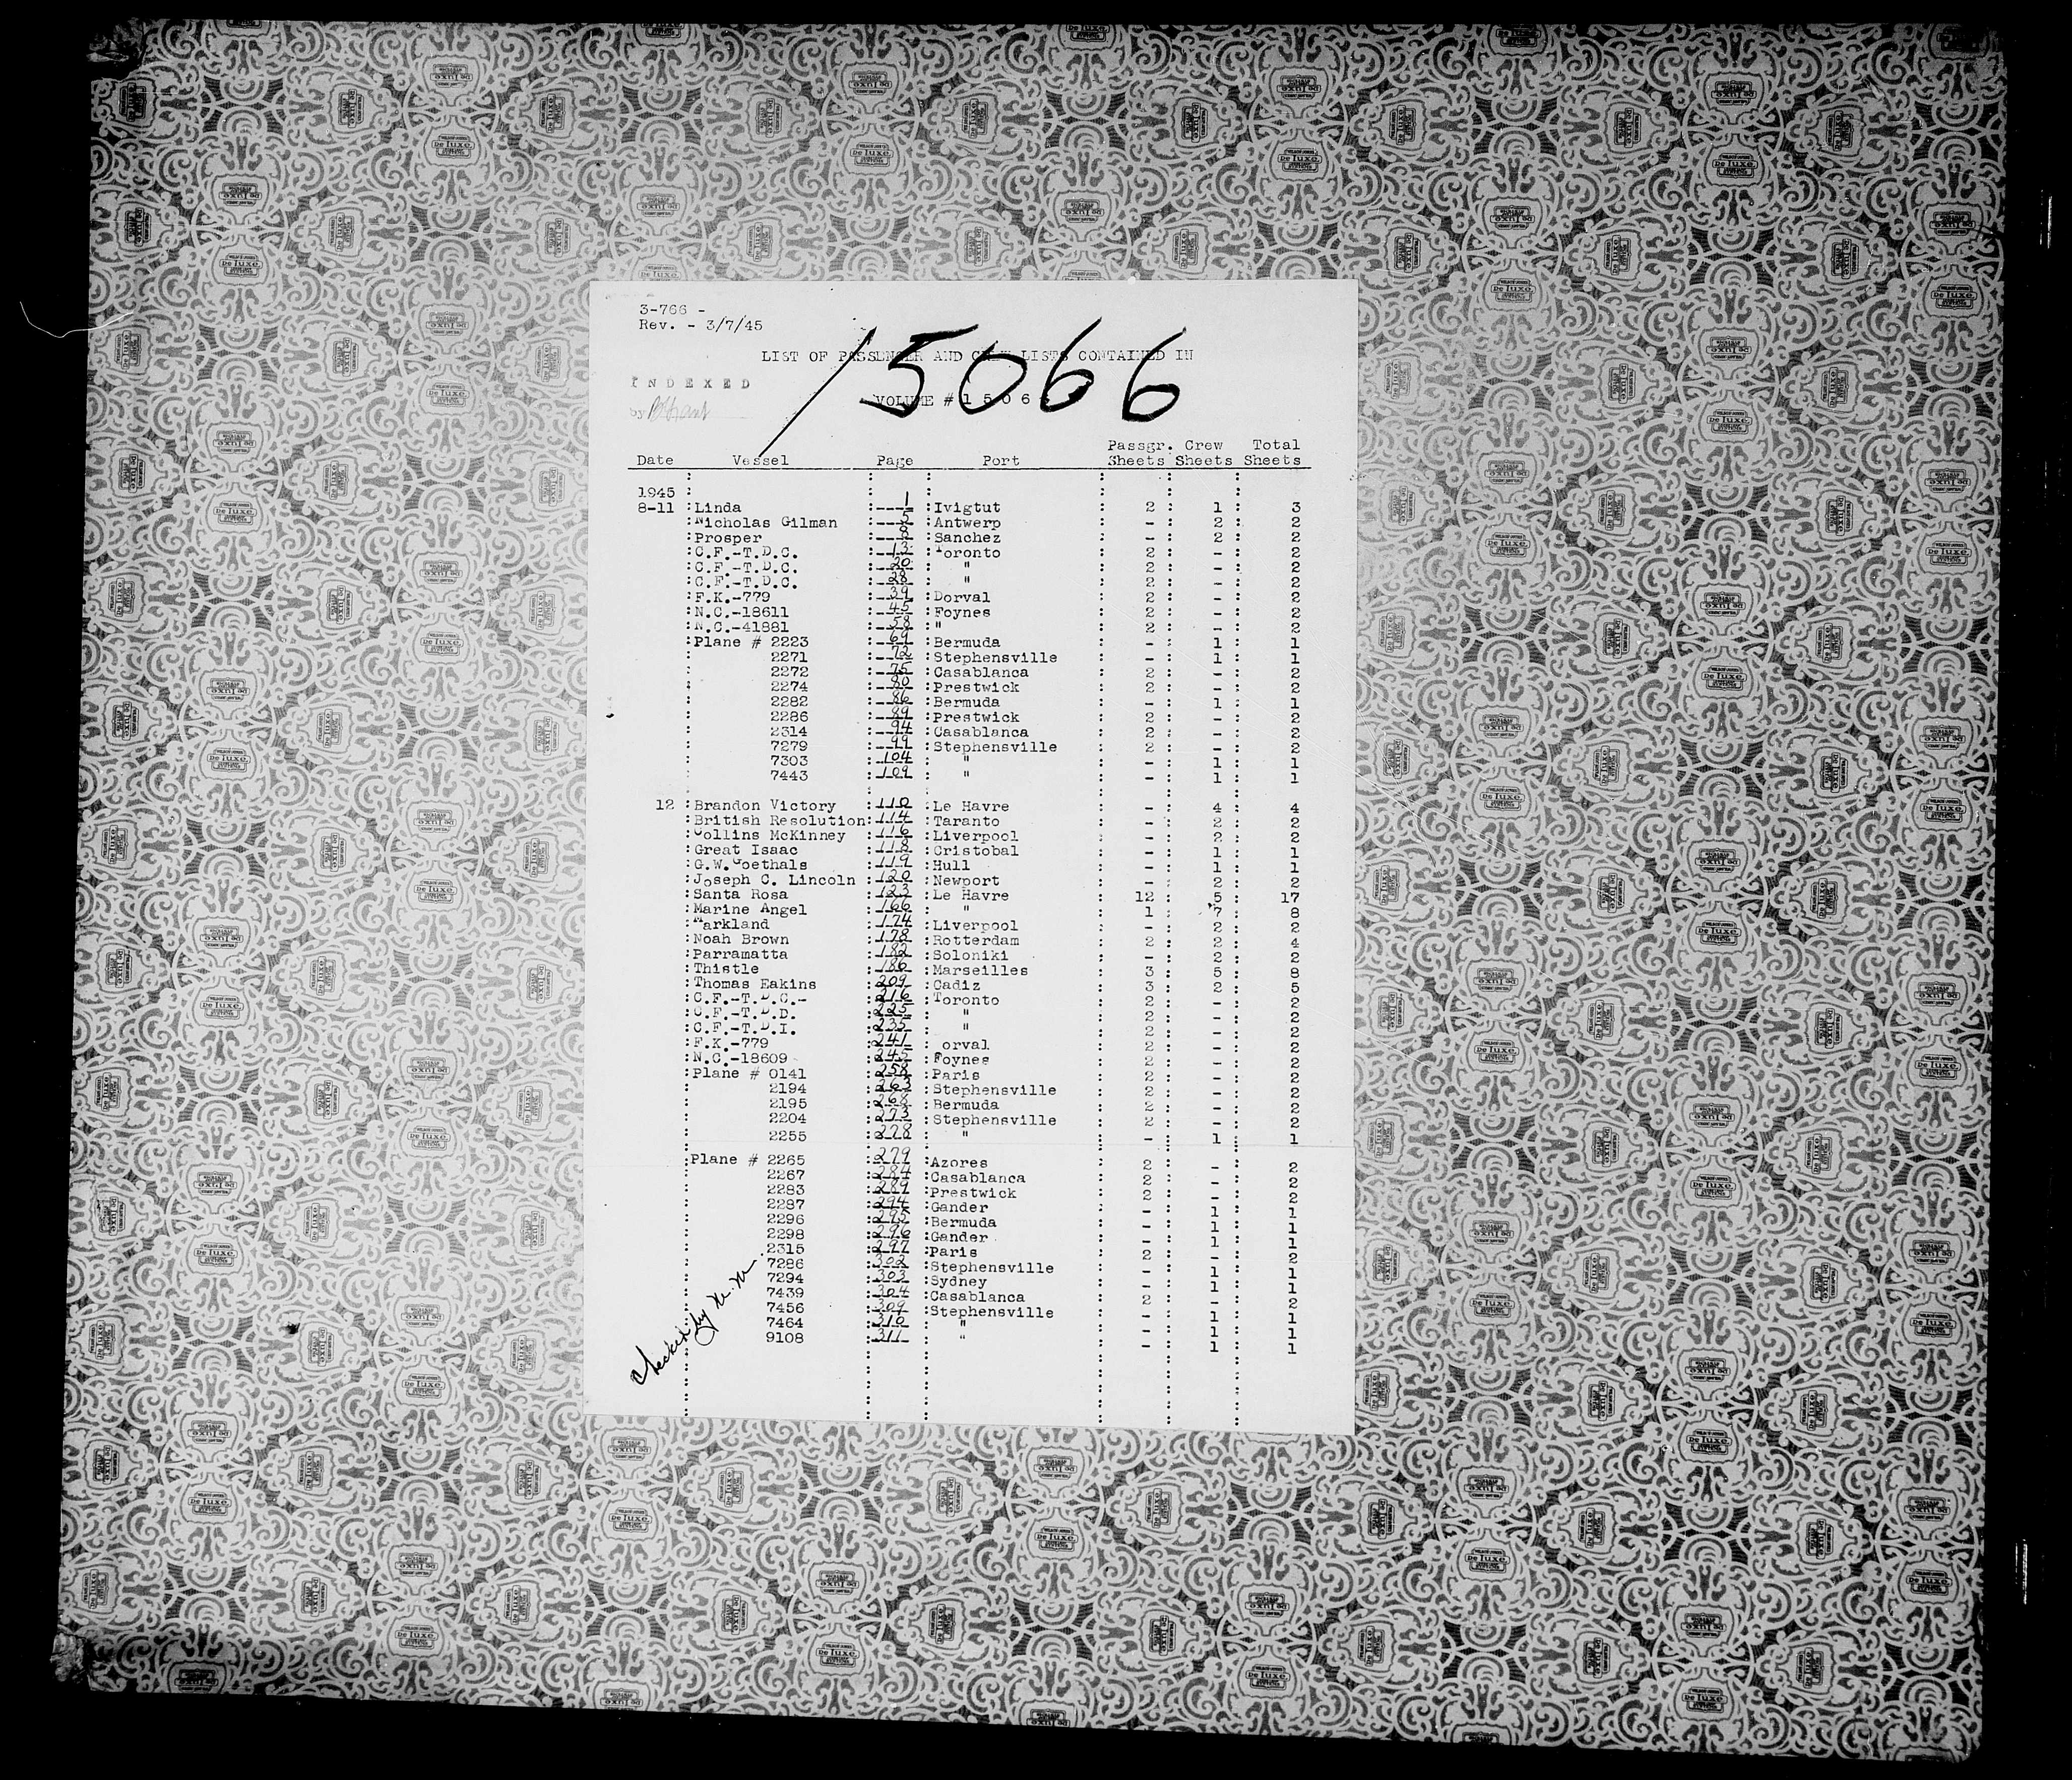 3-766 -
Rev. - 3/7/45
15066
LIST OF PASSENGER AND CREW LISTS CONTAINED IN
INDEXED
by
VOLUME # 1 5 0 6 6
Date Vessel Page Port Passgr. Sheets Crew Sheets Total Sheets
1945
8-11 Linda 1 Ivigtut 2 1 3
Nicholas Gilman 5 Antwerp - 2 2
Prosper 8 Sanchez - 2 2
C.F.-T.D.C. 13 Toronto 2 - 2
C.F.-T.D.C. 20 " 2 - 2
C.F.-T.D.C. 28 " 2 - 2
F.K.-779 39 Dorval 2 - 2
N.C.-18611 45 Foynes 2 - 2
N.C.-41881 58 " 2 - 2
Plane # 2223 69 Bermuda - 1 1
2271 72 Stephensville - 1 1
2272 75 Casablanca 2 - 2
2274 80 Prestwick 2 - 2
2282 86 Bermuda - 1 1
2286 89 Prestwick 2 - 2
2314 94 Casablanca 2 - 2
7279 99 Stephensville 2 - 2
7303 104 " - 1 1
7443 109 " - 1 1
12 Brandon Victory 110 Le Havre - 4 4
British Resolution 114 Taranto - 2 2
Collins McKinney 116 Liverpool - 2 2
Great Isaac 118 Cristobal - 1 1
G.W. Goethals 119 Hull - 1 1
Joseph C. Lincoln 120 Newport - 2 2
Santa Rosa 123 Le Havre 12 5 17
Marine Angel 166 " 1 7 8
Markland 174 Liverpool - 2 2
Noah Brown 178 Rotterdam 2 2 4
Parramatta 182 Soloniki - 2 2
Thistle 186 Marseilles 3 5 8
Thomas Eakins 209 Cadiz 3 2 5
C.F.-T.D.C.- 216 Toronto 2 - 2
C.F.-T.D.D. 225 " 2 - 2
C.F.-T.D.I. 235 " 2 - 2
F.K.-779 241 orval 2 - 2
N.C.-18609 245 Foynes 2 - 2
Plane # 0141 258 Paris 2 - 2
2194 263 Stephensville 2 - 2
2195 268 Bermuda 2 - 2
2204 273 Stephensville 2 - 2
2255 278 " - 1 1
Plane # 2265 279 Azores 2 - 2
2267 284 Casablanca 2 - 2
2283 289 Prestwick 2 - 2
2287 294 Gander - 1 1
2296 295 Bermuda - 1 1
2298 296 Gander - 1 1
2315 297 Paris 2 - 2
7286 302 Stephensville - 1 1
7294 303 Sydney - 1 1
7439 304 Casablanca 2 - 2
7456 309 Stephensville - 1 1
7464 310 " - 1 1
9108 311 " - 1 1
Checked by